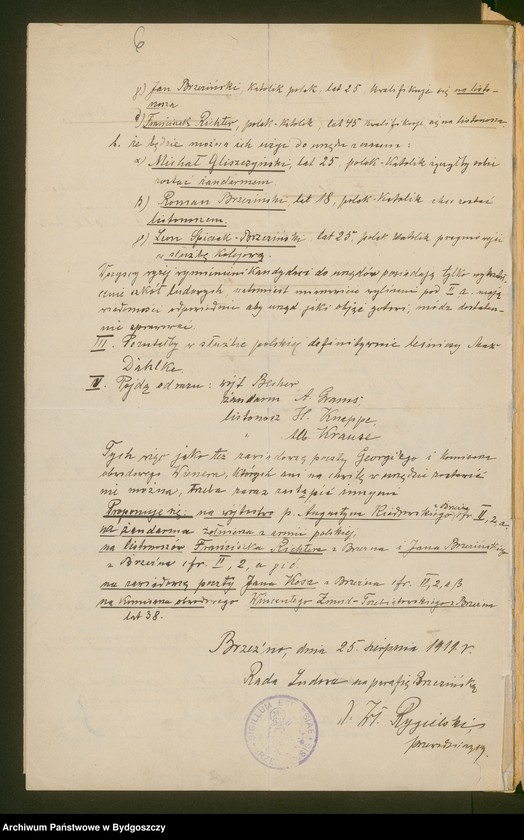 6
γ) Jan Brzeziński, katolik polak, lat 25 kwalifikuje się na listo-
nosza
δ) Franciszek Richter, polak-katolik, lat 45 kwalifikuje się na listonosza
b. że będzie można ich użyć do urzędu zaraz:
α) Michał Gliszczyński, lat 25, polak-katolik życzyłby sobie
zostać żandarmem.
β) Roman Brzeziński, lat 18, polak-katolik chce zostać
listonoszem.
γ) Leon Spiczak-Brzeziński lat 25, polak katolik pragnie
w służbę kolejową.
Wszyscy wyżej wymienieni kandydaci do urzędów posiadają tylko wykształ-
cenie szkół ludowych, natomiast mianowicie wyliczeni pod II a. mają
wiadomości odpowiednie aby urząd jaki objąć gotowi, módz dostatecz-
nie sprawować.
III. Pozostałby w służbie polskiej definitywnie leśniczy Max
Dahlke.
IV. Pójdą od razu: wójt Becher
żandarm A. Grams,
listonosz H. Kneppe
" Alb. Krause
Tych więc jako też zawiadowcę poczty Georgikego i komisarza
obwodowego Wienera, których ani na chwilę w urzędzie zostawić
nie można, trzeba zaraz zastąpić innymi
Proponuje się: na wójtostwo p. Augustyna Kiedrowskiego cfr. II, 2, a.
na żandarma żołnierza z armii polskiej,
na listonoszów Franciszka Richtera z Brzezna i Jana Brzezińskiego
z Brzeźna cfr. II, 2, a γ i δ.
na zawiadowcę poczty Jana Kosz z Brzeźna cfr. II, 2, a β
na komisarza obwodowego Wincentego Zmuda-Trzebiatowskiego z Brzezna
lat 38.
Brzeźno, dnia 25. sierpnia 1919. r.
Rada Ludowa na parafię Brzezińską
X. Wł. Rygielski,
przewodniczący.
SIGILLUM ECCLESIAE
Archiwum Państwowe w Bydgoszczy